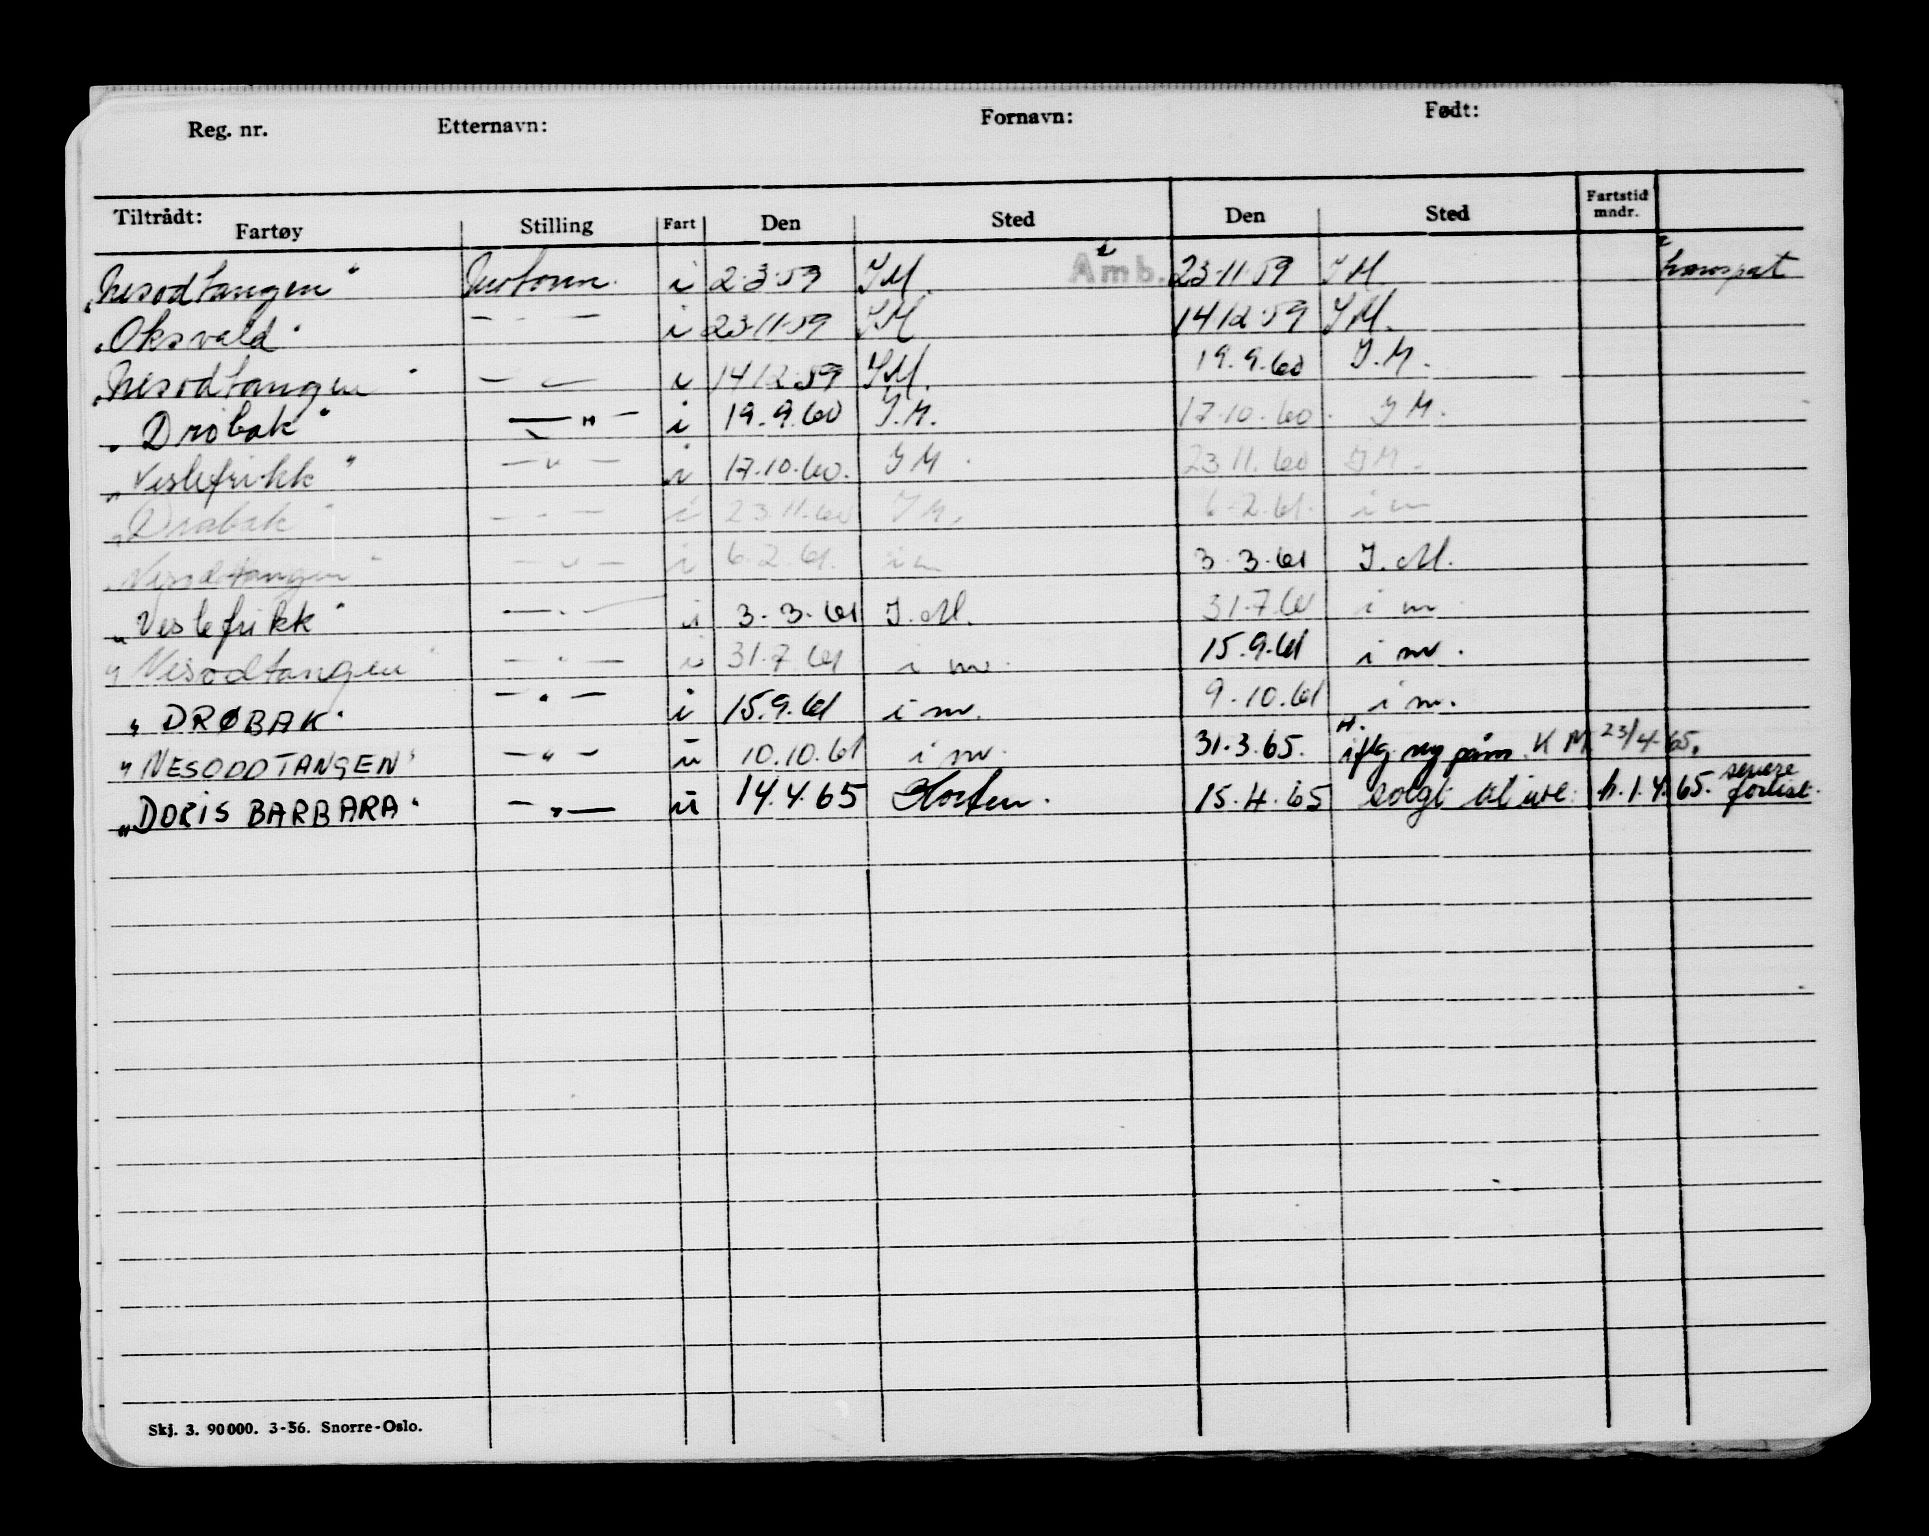 Reg. nr. Etternavn: Fornavn: Født:
Tiltrådt: Fartøy Stilling Fart Den Sted Den Sted Fartstid mndr.
"Nesodtangen" i 2.3.59 I M. Amb. 23.11.59 I M.
"Oksvald" — " — i 23.11.59 I M 14/12.59 I M.
"Nesodtangen" — " — i 14/12.59 I M. 19.9.60 I. M.
"Drøbak" — " — i 19.9.60 I. M. 17.10.60. I M.
"Veslefrikk" — " — i 17.10.60. I M. 23.11.60 I M.
"Drøbak" — " — i 23.11.60 I M. 6.2.61. i m
"Nesodtangen" — " — i 6.2.61. i m 3.3.61 I. M.
"Veslefrikk" — " — i 3.3.61 I. M. 31.7.61 i m
"Nesodtangen" — " — i 31.7.61 i m. 15.9.61 i m.
"DRØBAK" — " — i 15.9.61 i m. 9.10.61 i m.
"NESODDTANGEN" — " — u 10.10.61 i m. 31.3.65. H. iflg. ny K M. 23/4-65.
"DORIS BARBARA" — " — u 14.4.65 Horten. 15.4.65 solgt til h. 1.4.65. senere forlist.
Skj. 3. 90000. 3-56. Snorre-Oslo.